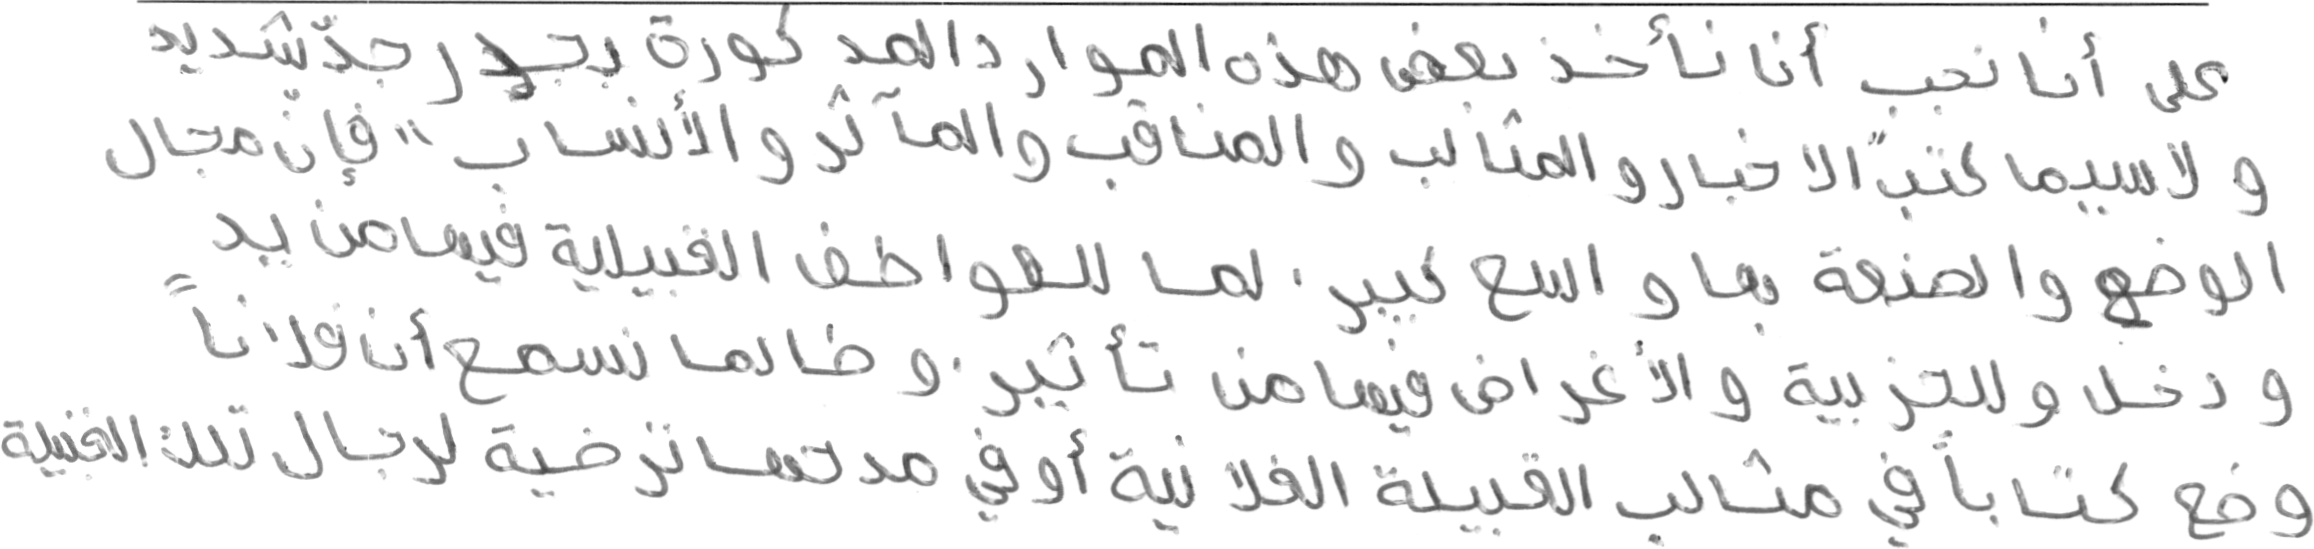 على أنا نحب أنا نأخذ بعض هذه الموارد المد كورة بحذر جدّ شديد
ولاسيما كتب "الاخبار والمثالب والمناقب والمآثر والأنساب" فإنّ مجال
الوضع والصنعة بها واسع كبير. لما للعواطف القبيلية فيها من يد
ودخل وللحزبية والأغراض فيها من تأثير. وطالما نسمع أن فلاناً
وضع كتاباً في مثالب القبيلة الفلانية أو في مدحها ترضية لرجال تلك القبيلة